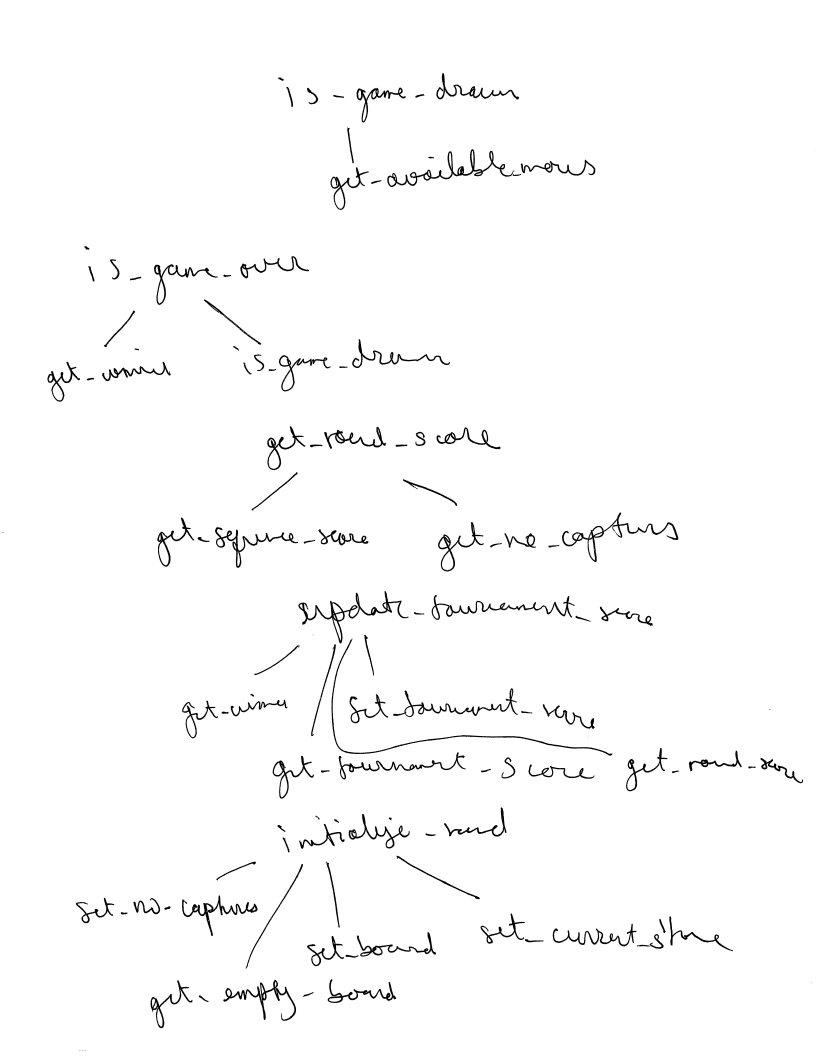 is_game_drawn
get_available_moves
is_game_over
get_winner is_game_drawn
get_round_score
get_sequence_score get_no_captures
update_tournament_score
get_winner set_tournament_score
get_tournament_score get_round_score
initialize_round
set_no_captures
set_board set_current_stone
get_empty_board